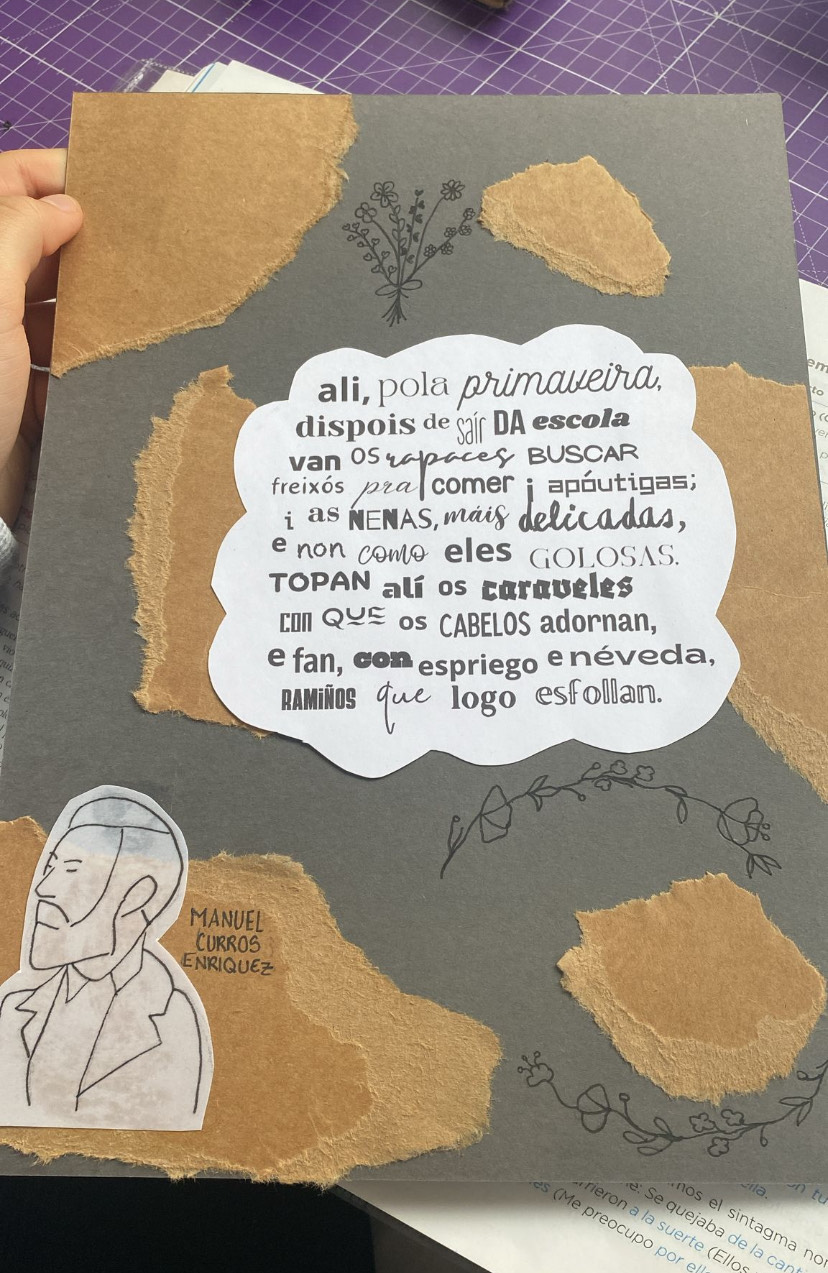 ali, pola primaveira,
dispois de saír DA escola
van os rapaces BUSCAR
freixós pra comer i apóutigas;
i as NENAS, máis delicadas,
e non como eles GOLOSAS.
TOPAN alí os caraveles
CON QUE os CABELOS adornan,
e fan, con espriego e néveda,
RAMIÑOS que logo esfollan.
MANUEL
CURROS
ENRIQUEZ
mos el sintagma no
Se quejaba de la cant
rrieron a la suerte (Ellos
(Me preocupo por ell